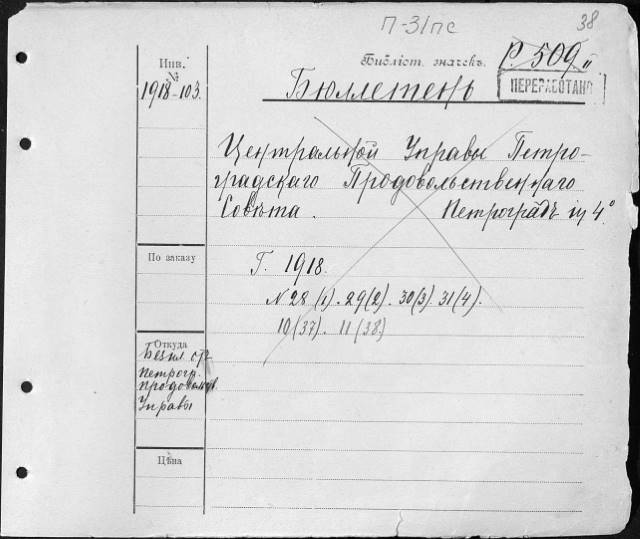 П-31/пс
38
Инв. №
1918-103.
Библіот. значекъ.
Р. 509
ПЕРЕРАБОТАНО
Бюллетень
Центральной Управы Петро-
градскаго Продовольственнаго
Совѣта. Петроградъ in 4°
По заказу
Г. 1918.
N 28 (1). 29(2). 30(3). 31(4).
10(37). 11(38)
Откуда
Петрогр.
Продовольств.
Управы
Цѣна